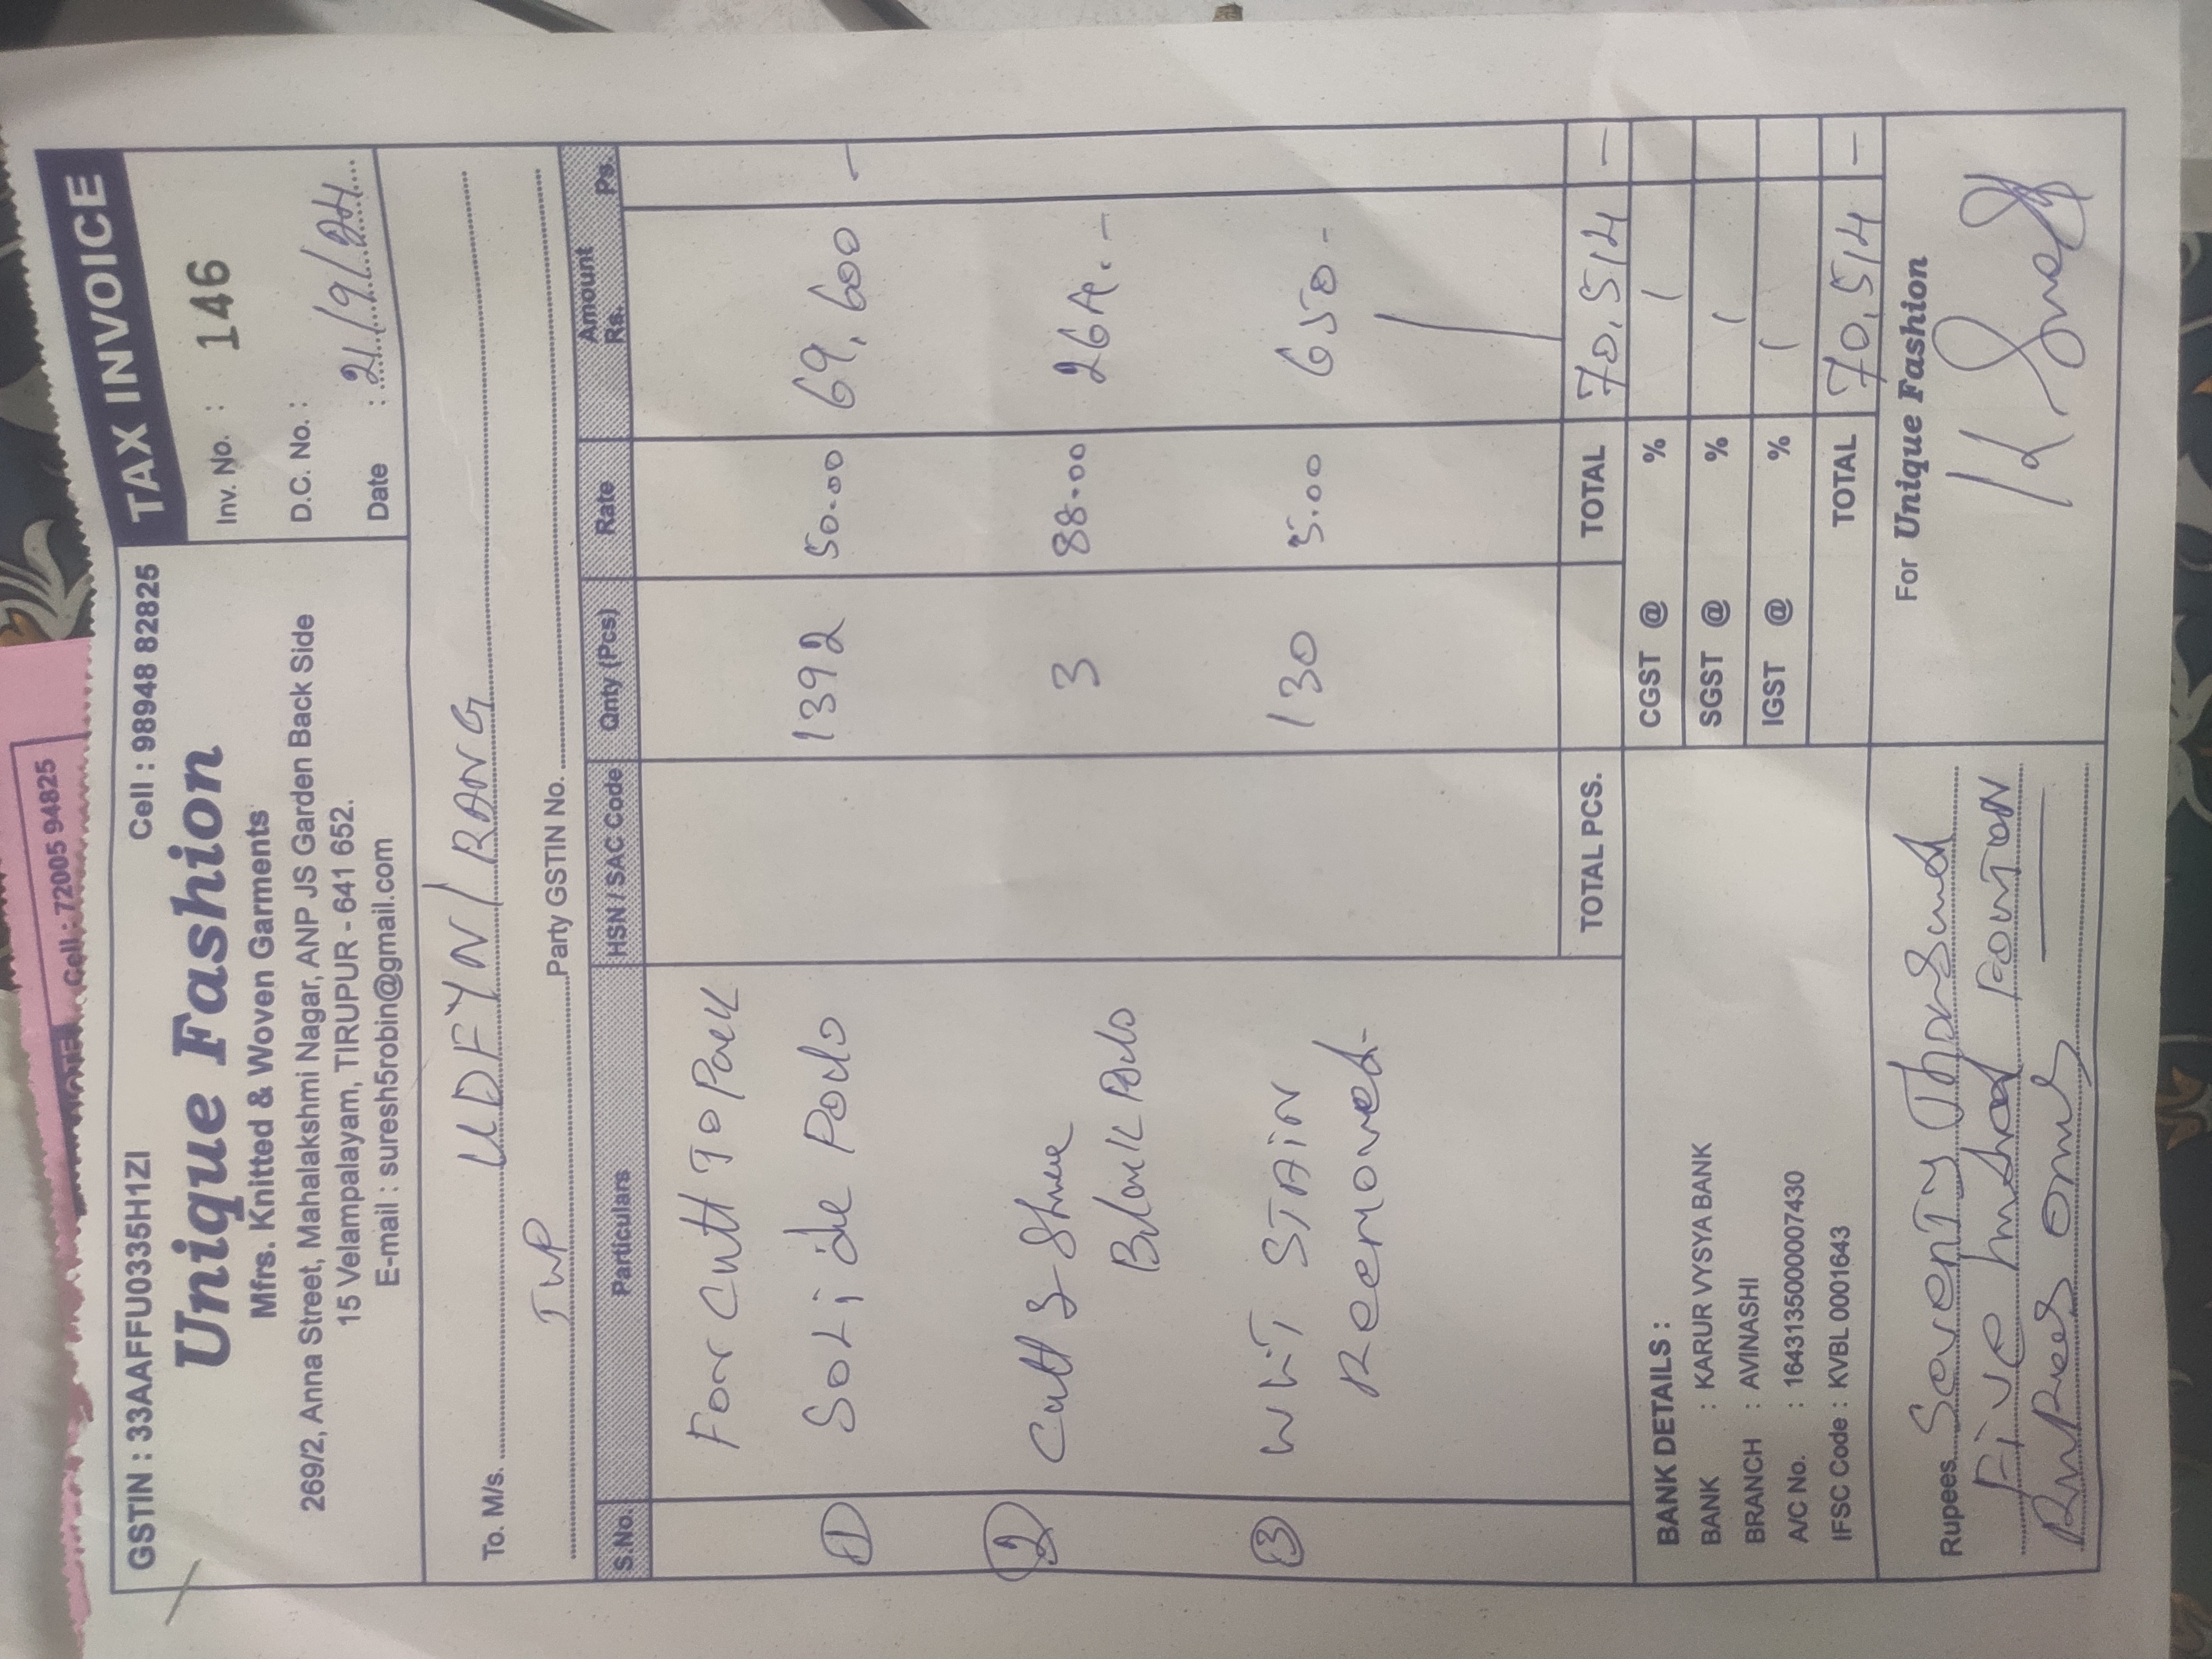 NOTE Cell : 72005 94825
GSTIN : 33AAFFU0335H1ZI Cell : 98948 82825
TAX INVOICE
Unique Fashion
Mfrs. Knitted & Woven Garments
269/2, Anna Street, Mahalakshmi Nagar, ANP JS Garden Back Side
15 Velampalayam, TIRUPUR - 641 652.
E-mail : suresh5robin@gmail.com
Inv. No. : 146
D.C. No. :
Date : 21/9/24
To. M/s. UDFYN/RANG
Party GSTIN No.
S.No. Particulars HSN / SAC Code Qnty (Pcs) Rate Amount Rs. Ps.
For Cutt TO Pack
1 SOLide Polo 1392 50.00 69,600 –
2 Cutt 3 88.00 264.–
Polo
3 WHT STAIN 130 5.00 650 -
Reemoved
TOTAL PCS. TOTAL 70,514 –
BANK DETAILS :
BANK : KARUR VYSYA BANK
BRANCH : AVINASHI
A/C No. : 1643135000007430
IFSC Code : KVBL 0001643
CGST @ %
SGST @ %
IGST @ %
TOTAL 70,514 –
Rupees Seventy Thousand
Five hundred Fourteen
Rupees Only
For Unique Fashion